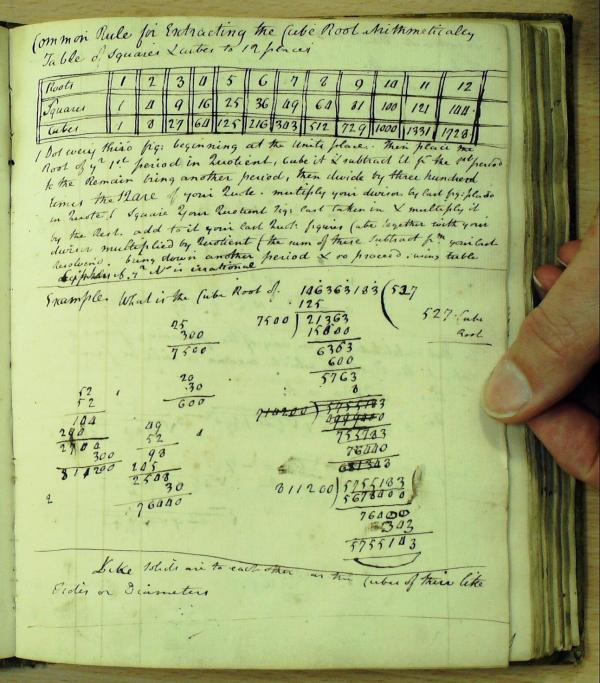 Common Rule for Extracting the Cube Root Arithmetically
Table of Squares & Cubes to 12 places
Roots 1 2 3 4 5 6 7 8 9 10 11 12
Squares 1 4 9 16 25 36 49 64 81 100 121 144
Cubes 1 8 27 64 125 216 343 512 729 1000 1331 1728
1 Dot every third fig: beginning at the Units place. Then place the
Root of yr 1st period in Quotient, Cube it & subtract it fm the 1st period
to the Remain bring another period, then divide by three hundred
times the Square of your Quote. multiply your divisor by last fig: placed
in Quote & Square your Quotient fig: last taken in & multiply it
by the Rest. add to it your last Quot: figures Cube together with your
divisor multiplied by Quotient (the sum of these Subtract fm your last
Resolvend. bring down another period & so proceed, using
if yr No is irrational
Example. What is the Cube Root of 146363183 (527
125
7500 ) 21363
15000
6363
600
5763
527 Cube
Root
25
300
7500
20
30
600
714200 ) 5755183
755783
76440
52
52
104
2704
300
811200
49
52
98
245
2548
30
76440
811200 ) 5755183
5678400
76400
343
5755143
Like Solids are to each other as the Cubes of their like
Sides or Diameters